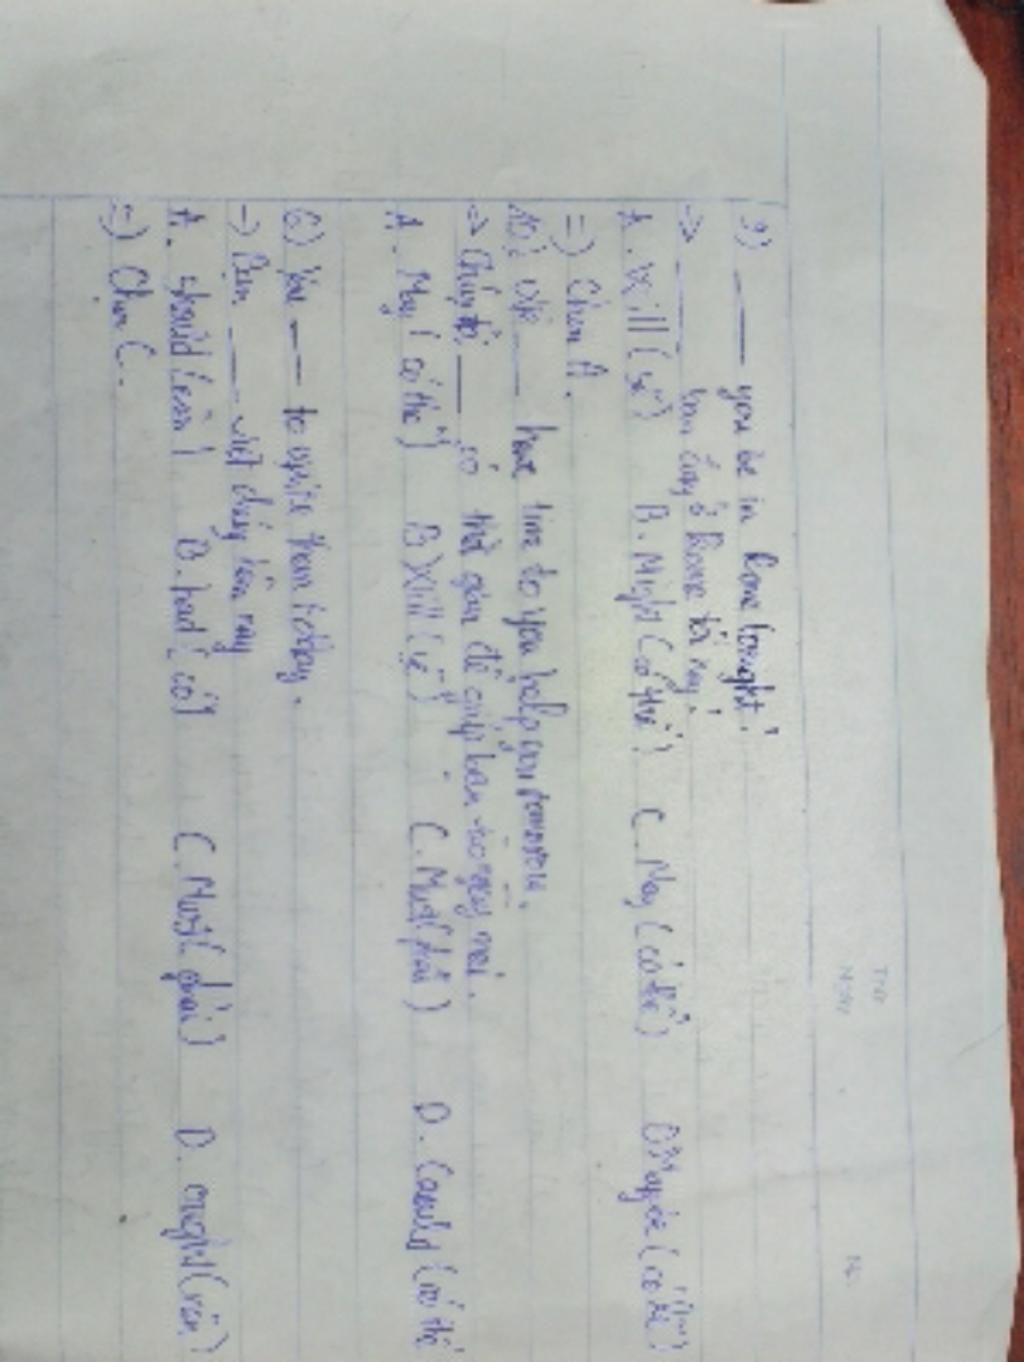 9) ____ you be in Rome tonight?
=> ____ bạn đang ở Rome tối nay?
A. Will (sẽ) B. Might (có thể) C. May (có thể) D Maybe (có thể)
=) Chọn A.
10) We ____ have time to you help you tomorrow.
=> Chúng tôi ____ có thời gian để giúp bạn vào ngày mai.
A. May (có thể) B Will (sẽ) C. Must (phải) D. Could (có thể
6) You ____ to write them today.
-) Bạn ____ viết chúng hôm nay
A. should (nên) B. had (có) C. Must (phải) D. ought (nên)
=) Chọn C.